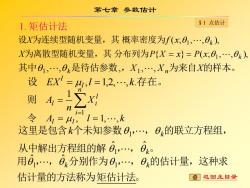 第七章 参数估计
§1 点估计
1. 矩估计法
设X为连续型随机变量，其 概率密度为f(x,θ₁,⋯,θₖ),
X为离散型随机变量，其 分布列为P{X = x} = P(x,θ₁,⋯,θₖ),
其中θ₁,⋯,θₖ是待估参数,，X₁,⋯,Xₙ为来自X的样本。
设 EXˡ = μₗ, l = 1,2,⋯,k.存在。
则 Aₗ = 1/n ∑ᵢ₌₁ⁿ Xᵢˡ
令 Aₗ = μₗ, l = 1,⋯,k
这里是包含k个未知参数θ₁,⋯, θₖ的联立方程组，
从中解出方程组的解 θ̂₁,⋯, θ̂ₖ。
用θ̂₁,⋯, θ̂ₖ分别作为θ₁,⋯, θₖ的估计量，这种求
估计量的方法称为矩估计法。
返回主目录